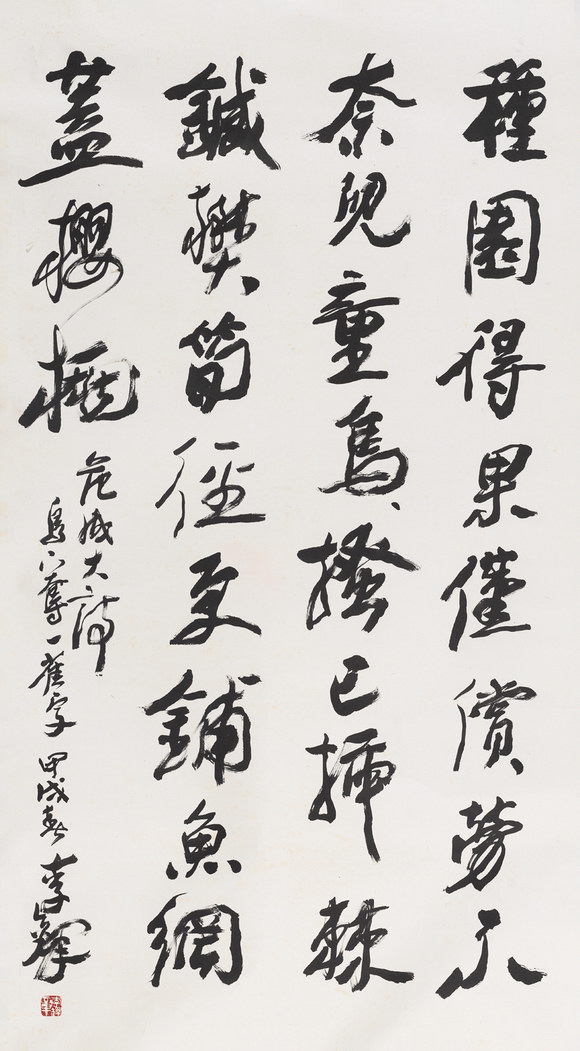 種園得果僅償勞不
奈兒童鳥搔已插棘
鍼樊筍徑更鋪魚網
蓋櫻桃
范成大詩
鳥下奪一雀字 甲戌春 李鐸